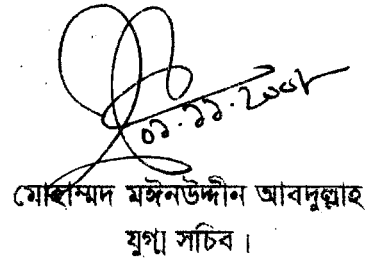 ০১.১১.২০০৮
মোহাম্মদ মঈনউদ্দীন আবদুল্লাহ
যুগ্ম সচিব।